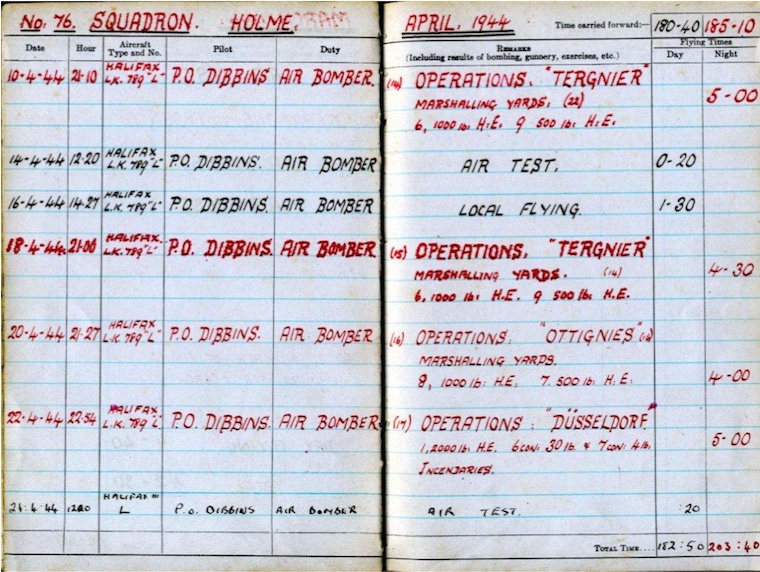 No. 76. SQUADRON. HOLME.
APRIL, 1944 Time carried forward:— 180-40 185-10
Date Hour Aircraft Type and No. Pilot Duty Remarks (Including results of bombing, gunnery, exercises, etc.) Flying Times Day Night
10-4-44 21-10 HALIFAX L.K. 789 "L" P.O. DIBBINS. AIR BOMBER (14) OPERATIONS. "TERGNIER"
MARSHALLING YARDS, (22) 5-00
6, 1000 lb. H.E. 9 500 lb. H.E.
14-4-44 12-20 HALIFAX L.K. 789 "L" P.O. DIBBINS. AIR BOMBER AIR TEST. 0-20
16-4-44 14-27 HALIFAX L.K. 789 "L" P.O. DIBBINS. AIR BOMBER LOCAL FLYING. 1-30
18-4-44. 21-00 HALIFAX L.K. 789 "L" P.O. DIBBINS. AIR BOMBER. (15) OPERATIONS, "TERGNIER"
MARSHALLING YARDS. (14) 4-30
6, 1000 lb. H.E. 9 500 lb. H.E.
20-4-44 21-27 HALIFAX L.K. 789 "L" P.O. DIBBINS. AIR BOMBER (16) OPERATIONS. "OTTIGNIES"
MARSHALLING YARDS.
8, 1000 lb. H.E. 7. 500 lb. H.E. 4-00
22-4-44 22-54 HALIFAX L.K. 789 "L" P.O. DIBBINS. AIR BOMBER (17) OPERATIONS: "DÜSSELDORF."
1, 2000 lb. H.E. 6 con: 30 lb. & 7 con: 4 lb. 5-00
INCENDIARIES.
HALIFAX III L P.O. DIBBINS AIR BOMBER AIR TEST. :20
TOTAL TIME.... 182:50 203:40